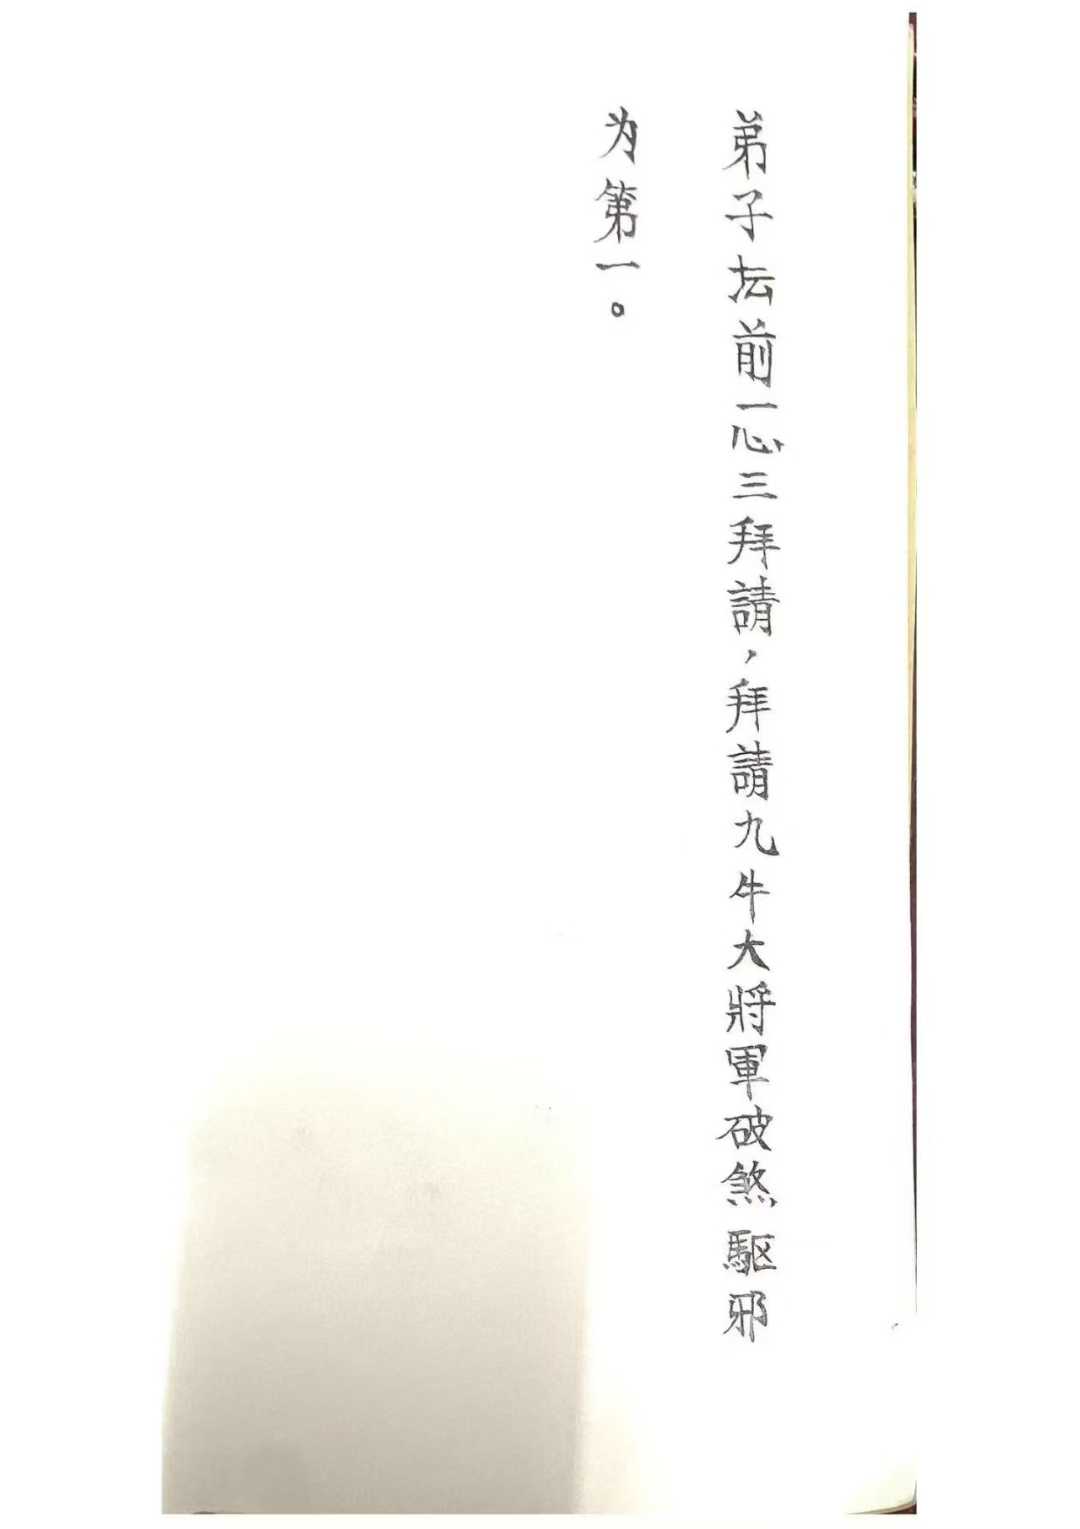 弟子坛前一心三拜請，拜請九牛大將軍破煞駆邪
为第一。